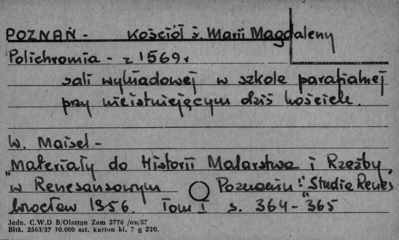 POZNAŃ - Kościół ś. Marii Magdaleny
Polichromia - z 1569r
sali wykładowej w szkole parafialnej
przy nieistniejącym dziś kościele.
W. Maisel -
"Materiały do Historii Malarstwa i Rzeźby
w Renesansowym Poznaniu". "Studia Renes
Wrocław 1956. Tom I s. 364-365
Jedn. C.W.D B/Olsztyn Zam 2776 /on/57
Bltk. 2563/57 10.000 szt. karton kl. 7 g 220.